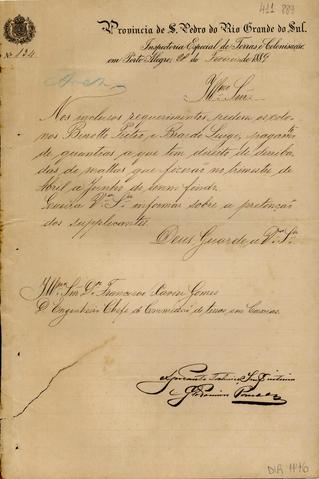 411 889
Provincia de S. Pedro do Rio Grande do Sul.
Nº 134
Inspectoria Especial de Terras e Colonisação
em Porto Alegre, de Fevereiro de 188
Illmo Snr.
Nos inclusos requerimentos pedem os colo-
nos Binotti Pietro e Biardo Luigi, pagamto
de quantias a que tem direito de derruba-
das de mattos que fizerão no trimestre de
Abril a Junho do anno findo.
Queira Vª Sª informar sobre a pretenção
dos supplicantes.
Deus Guarde a Vª Sª
Illmo Snr Dr Francisco Xavier Gomes
D. Engenheiro Chefe da Commissão de terras em Caxias
DIR 1476